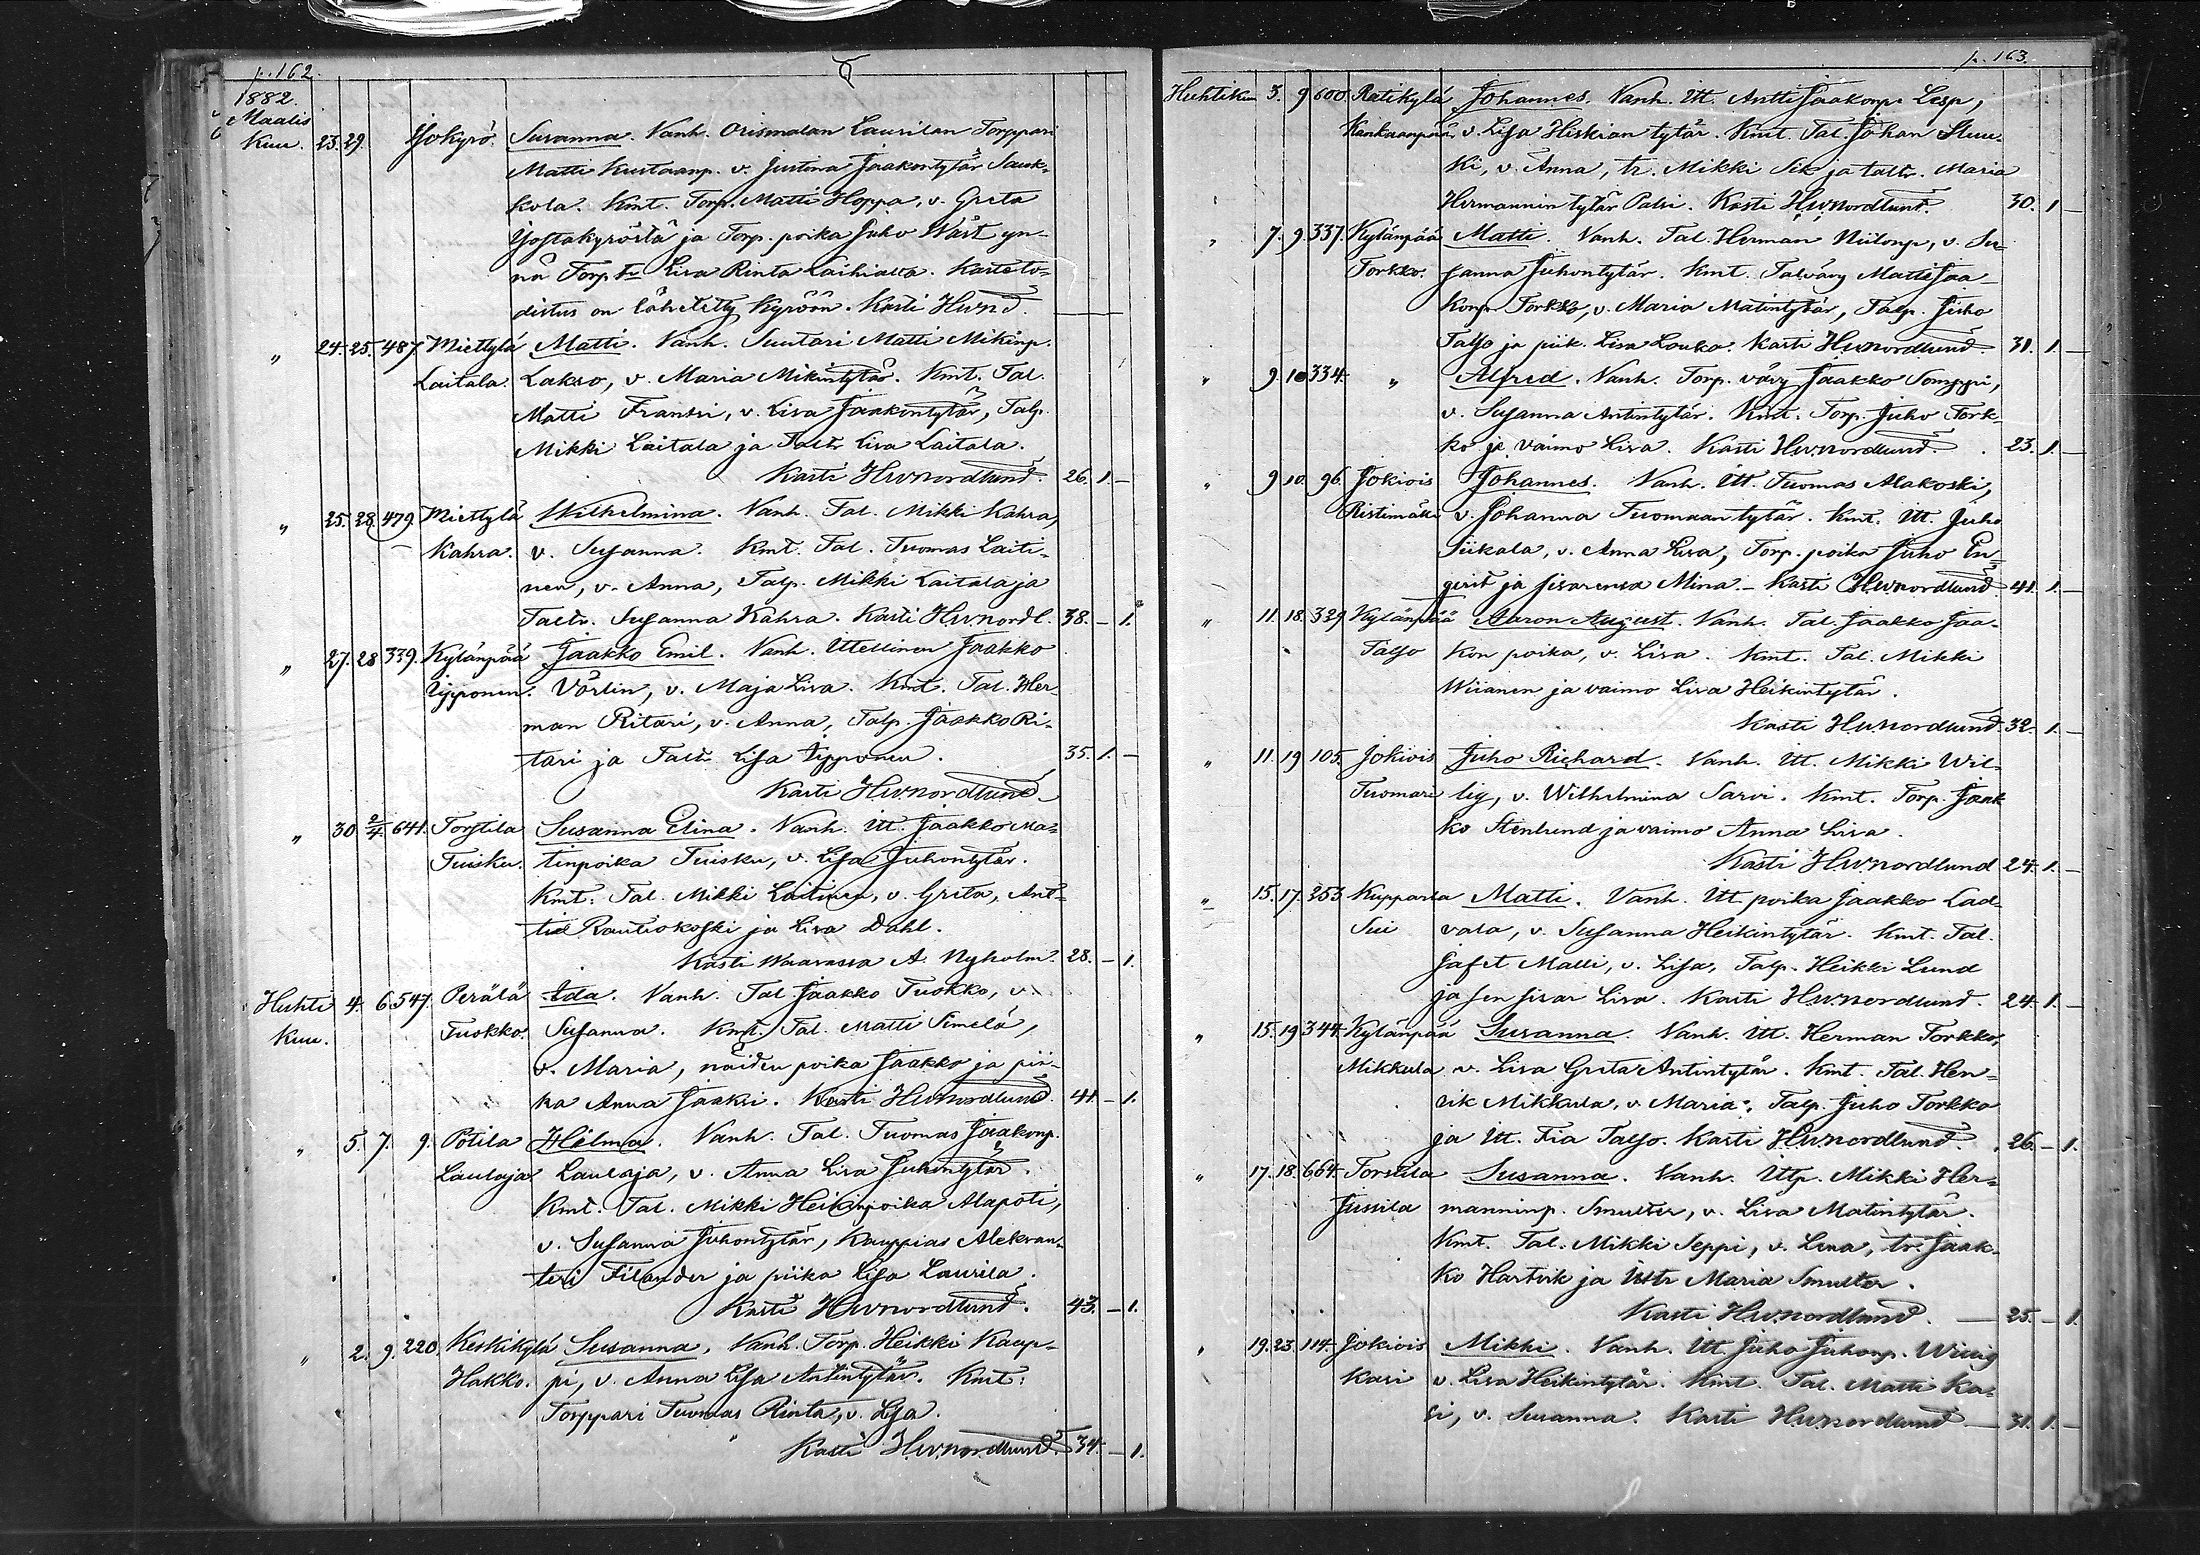 p. 162.
1882.
Maalis
Kuu. 23. 29. Isokyrö. Susanna. Vanh. Orismalan Laurilan Torppari
Matti Kustaanp. v. Justina Jaakontytär Sauk-
kola. Kmt. Torp. Matti Hoppa, v. Greta
Isostakyröstä ja Torp. poika Juho Wäst yn-
nä Torp. tr Lisa Rinta Laihiasta. Kasteto-
distus on lähetetty Kyröön. Kasti H.W.N-d.
" 24. 25. 487. Miettylä Matti. Vanh. Suutari Matti Mikinp.
Laitala. Lakso, v. Maria Mikintytär. Kmt. Tal.
Matti Frantsi, v. Lisa Jaakontytär, Talp.
Mikki Laitala ja Taltr Lisa Laitala.
Kasti H.W.Nordlund. 26. 1. –
" 25. 28. 479. Miettylä Wilhelmina. Vanh. Tal. Mikki Kahra,
Kahra. v. Susanna. Kmt. Tal. Tuomas Laiti-
nen, v. Anna, Talp. Mikki Laitala ja
Taltr. Susanna Kahra. Kasti H.W.Nordl. 38. – 1.
" 27. 28. 339. Kylänpää Jaakko Emil. Vanh. Itellinen Jaakko
Ypponen. Vörlin, v. Maja Lisa. Kmt. Tal. Her-
man Ritari, v. Anna, Talp. Jaakko Ri-
tari ja Taltr Lisa Ypponen. 35. 1. –
Kasti H.W.Nordlund
" 30. 2/4. 641. Torstila Susanna Elina. Vanh. Itt. Jaakko Ma-
Tuisku. tinpoika Tuisku, v. Lisa Juhontytär.
Kmt. Tal. Mikki Laitinen, v. Greta, Ant-
ti Rautiokoski ja Lisa Dahl.
Kasti Waasassa A. Nyholm. 28. – 1.
Huhti 4. 6. 547. Perälä Ida. Vanh. Tal. Jaakko Tuokko, v.
Kuu. Tuokko. Susanna. Kmt. Tal. Matti Simelä,
v. Maria, näiden poika Jaakko ja pii-
ka Anna Jaaksi. Kasti H.W.Nordlund. 41. – 1.
" 5. 7. 9. Potila Hilma. Vanh. Tal. Tuomas Jaakonp.
Laulaja Laulaja, v. Anna Lisa Juhontytär.
Kmt. Tal. Mikki Heikinpoika Alapoti,
v. Susanna Juhontytär, Kauppias Aleksan-
teri Filander ja piika Lisa Laurila.
Kasti H.W.Nordlund. 43. – 1.
" 2. 9. 220. Keskikylä Susanna, Vanh. Torp. Heikki Kaup-
Hakko. pi, v. Anna Lisa Antintytär. Kmt:
Torppari Tuomas Rinta, v. Lisa.
Kasti H.W.Nordlund. 34. – 1.
p. 163.
Huhtikuu 3. 9. 600. Ratikylä Johannes. Vanh. Itt. Antti Jaakonp.
Kankaanpää v. Lisa Hiskian tytär. Kmt. Tal. Johan Stuu-
ki, v. Anna, tr. Mikki Sik ja taltr. Maria
Hermannin tytär Palsi. Kasti H.W.Nordlund. 30. 1. –
" 7. 9. 337. Kylänpää Matti. Vanh. Tal. Herman Niilonp., v. Su-
Torkko. sanna Juhontytär. Kmt. Talvävy Matti Jaa-
konp. Torkko, v. Maria Matintytär, Talp. Juho
Talso ja piik. Lisa Louko. Kasti H.W.Nordlund. 31. 1. –
" 9. 10. 334. " Alfred. Vanh. Torp. vävy Jaakko Somppi,
v. Susanna Antintytär. Kmt. Torp. Juho Tork-
ko ja vaimo Lisa. Kasti H.W.Nordlund. 23. 1. –
" 9. 10. 96. Jokivois Johannes. Vanh. Itt. Tuomas Alakoski,
Ristimäki v. Johanna Tuomaantytär. Kmt. Itt. Juho
Siikala, v. Anna Lisa, Torp. poika Juho En-
gerit ja sisarensa Mina. – Kasti H.W.Nordlund 41. 1. –
" 11. 18. 329. Kylänpää Aaron August. Vanh. Tal. Jaakko Jaa-
Talso kon poika, v. Lisa. Kmt. Tal. Mikki
Wiianen ja vaimo Lisa Heikintytär.
Kasti H.W.Nordlund. 32. 1. –
" 11. 19. 105. Jokivois Juho Richard. Vanh. Itt. Mikki Wil-
Tuomari lig, v. Wilhelmina Sarvi. Kmt. Torp. Jaak
ko Stenlund ja vaimo Anna Lisa.
Kasti H.W.Nordlund 24. 1. –
" 15. 17. 253. Kupparla Matti. Vanh. Itt poika Jaakko Lad-
Sui vala, v. Susanna Heikintytär. Kmt. Tal.
Jafet Malli, v. Lisa, Talp. Heikki Lund
ja sen sisar Lisa. Kasti H.W.Nordlund. 24. 1. –
" 15. 19. 344. Kylänpää Susanna. Vanh. Itt. Herman Torkko,
Mikkula v. Lisa Greta Antintytär. Kmt. Tal. Hen-
rik Mikkula, v. Maria, Talp. Juho Torkko
ja Itt. Fia Talso. Kasti H.W.Nordlund. 26. – 1.
" 17. 18. 664. Torstila Susanna. Vanh. Ittp. Mikki Her-
Jussila manninp. Smulter, v. Lisa Matintytär.
Kmt. Tal. Mikki Seppi, v. Lena, tr. Jaak-
ko Hartvik ja Ittr Maria Smulter.
Kasti H.W.Nordlund. – 25. – 1.
" 19. 23. 114. Jokivois Mikki. Vanh. Itt. Juho Juhonp. Willig
Kasi v. Lisa Heikintytär. Kmt. Tal. Matti Ka-
si, v. Susanna. Kasti H.W.Nordlund – 31. 1. –